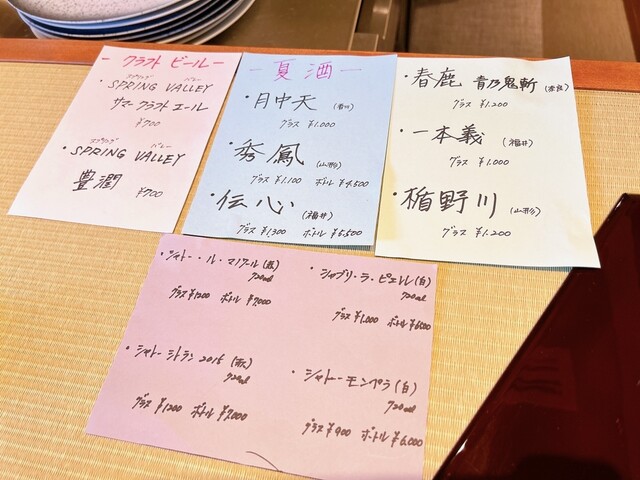 - クラフト ビール -
スプリング バレー
・SPRING VALLEY
サマークラフトエール
¥700
スプリング バレー
・SPRING VALLEY
豊潤
¥700
- 夏酒 -
・月中天 (香川)
グラス ¥1.000
・秀鳳 (山形)
グラス ¥1.100 ボトル ¥4.500
・伝心 (福井)
グラス ¥1.300 ボトル ¥5.500
・春鹿 青乃鬼斬 (奈良)
グラス ¥1.200
・一本義 (福井)
グラス ¥1.000
・楯野川 (山形)
グラス ¥1.200
・シャトー・ル・マノワール (赤)
720ml
グラス ¥1200 ボトル ¥7,000
・シャブリ・ラ・ピエレレ (白)
720ml
グラス ¥1,000 ボトル ¥6,000
・シャトーシトラン 2015 (赤)
720ml
グラス ¥1200 ボトル ¥7,000
・シャトーモンペラ (白)
720ml
グラス ¥900 ボトル ¥6,000